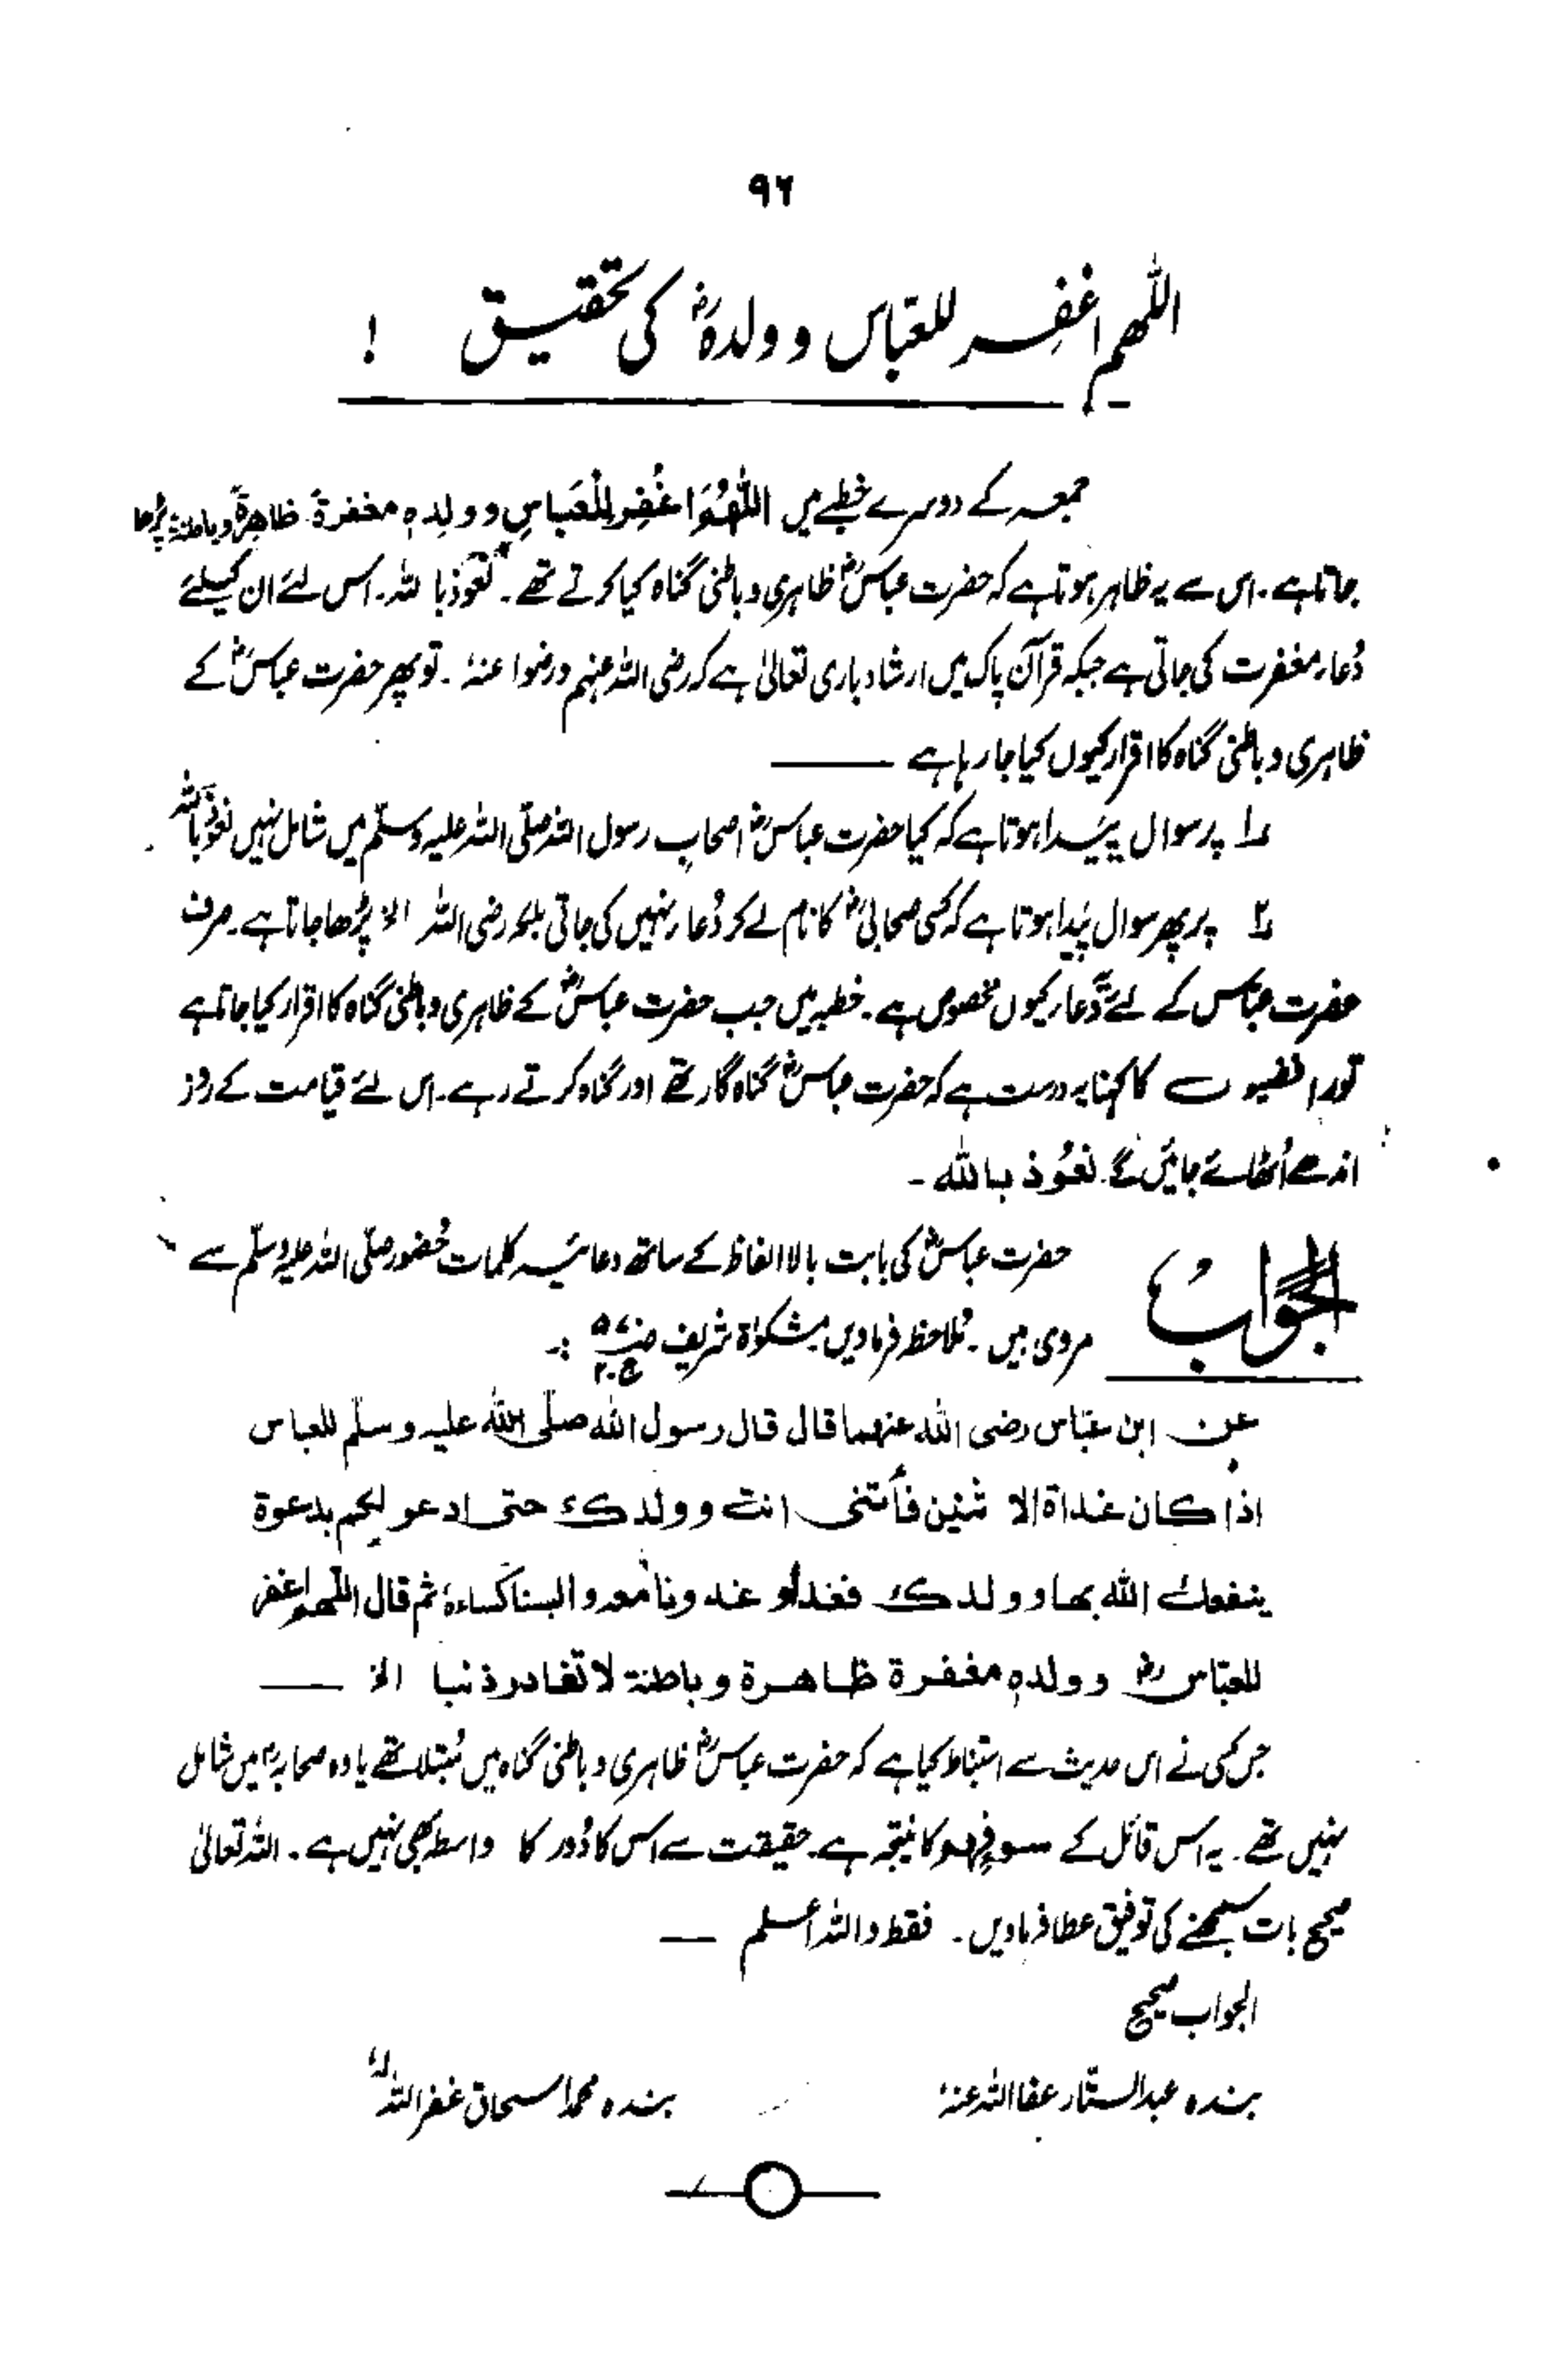 ۹۲
اللهم اغفر للعبّاس وولدهؓ کی تحقیق !
جمعہ کے دوسرے خطبے میں اللّٰهُمَّ اغْفِر لِلْعَباسِ وولِدهٖ مغفرةً ظاهِرةً وباطنة پڑھا
جاتا ہے۔ اس سے یہ ظاہر ہوتا ہے کہ حضرت عباسؓ ظاہری و باطنی گناہ کیا کرتے تھے۔ نعوذ با للہ۔ اس لئے ان کیلئے
دُعاء مغفرت کی جاتی ہے جبکہ قرآن پاک میں ارشاد باری تعالیٰ ہے کہ رضی اللہ عنہم ورضوا عنہٗ۔ تو پھر حضرت عباسؓ کے
ظاہری و باطنی گناہ کا اقرار کیوں کیا جا رہا ہے ——
۱؎ یہ سوال پیدا ہوتا ہے کہ کیا حضرت عباسؓ اصحابِ رسول اللہ صلّی اللہ علیہ وسلّم میں شامل نہیں نعوذ باللہ۔
۲؎ یہ پھر سوال پیدا ہوتا ہے کہ کسی صحابیؓ کا نام لے کر دُعاء نہیں کی جاتی بلکہ رضی اللہ الخ پڑھا جاتا ہے۔ صرف
حضرت عباس کے لئے دُعاء کیوں مخصوص ہے۔ خطبہ میں جب حضرت عباسؓ کے ظاہری و باطنی گناہ کا اقرار کیا جاتا ہے
تو رافضیوں کا کہنا یہ درست ہے کہ حضرت عباسؓ گناہ گار تھے اور گناہ کرتے رہے۔ اس لئے قیامت کے روز
اندھے اُٹھائے جائیں گے۔ نعوُذ باللہ۔
الجوابُ حضرت عباسؓ کی بابت بالا الفاظ کے ساتھ دعائیہ کلمات حُضور صلّی اللہ علیہ وسلّم سے
مروی ہیں۔ ملاحظہ فرماویں مشکوٰۃ شریف صـ۵۷۰ ج۲ :۔
عن ابن عبّاس رضی الله عنهما قال قال رسول الله صلّی الله علیہ وسلّم للعباس
اذا کان غداة الا ثنین فأتنی انت وولدک حتی ادعو لکم بدعوة
ینفعک الله بها وولدک فغدا و غدونا معه والبسنا کساءہٗ ثم قال اللّهم اغفر
للعبّاسؓ وولدهٖ مغفرة ظاهرة وباطنة لا تغادر ذنبا الخ ——
جس کسی نے اس حدیث سے استنباط کیا ہے کہ حضرت عباسؓ ظاہری و باطنی گناہ میں مُبتلا تھے یا وہ صحابہؓ میں شامل
نہیں تھے۔ یہ اس قائل کے سوءِ فہم کا نتیجہ ہے۔ حقیقت سے اس کا دُور کا واسطہ بھی نہیں ہے۔ اللہ تعالیٰ
صحیح بات سمجھنے کی توفیق عطا فرماویں۔ فقط واللہ اعلم ——
الجواب صحیح
بندہ عبدالستّار عفا اللہ عنہٗ بندہ محمد اسحاق غفر اللہ لہٗ